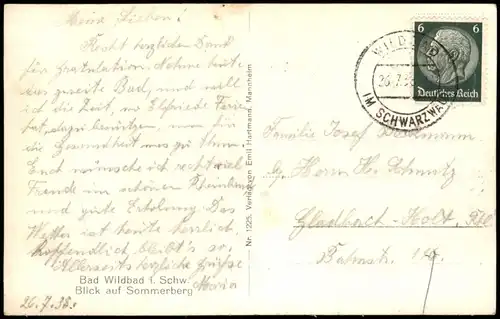 Meine Lieben!
Recht herzlichen Dank
für Gratulation. Nehme heute
das zweite Bad, und will
ich die Zeit, wo Elfriede Ferien
hat, dazu benützen, um für
die Gesundheit was zu tun.
Euch wünsche ich recht viel
Freude im schönen Rheinland
und gute Erholung. Das
Wetter ist heute herrlich,
hoffendlich bleibt's so.
Allerseits herzliche Grüße
Maria
26.7.38.
Bad Wildbad i. Schw.
Blick auf Sommerberg
Nr. 1225. Verlag von Emil Hartmann, Mannheim
6 6
Deutsches Reich
WILDBAD
26.7.38
IM SCHWARZWALD
Familie Josef
Herrn H. Schmitz
Gladbach-Holt,
Bahnstr.